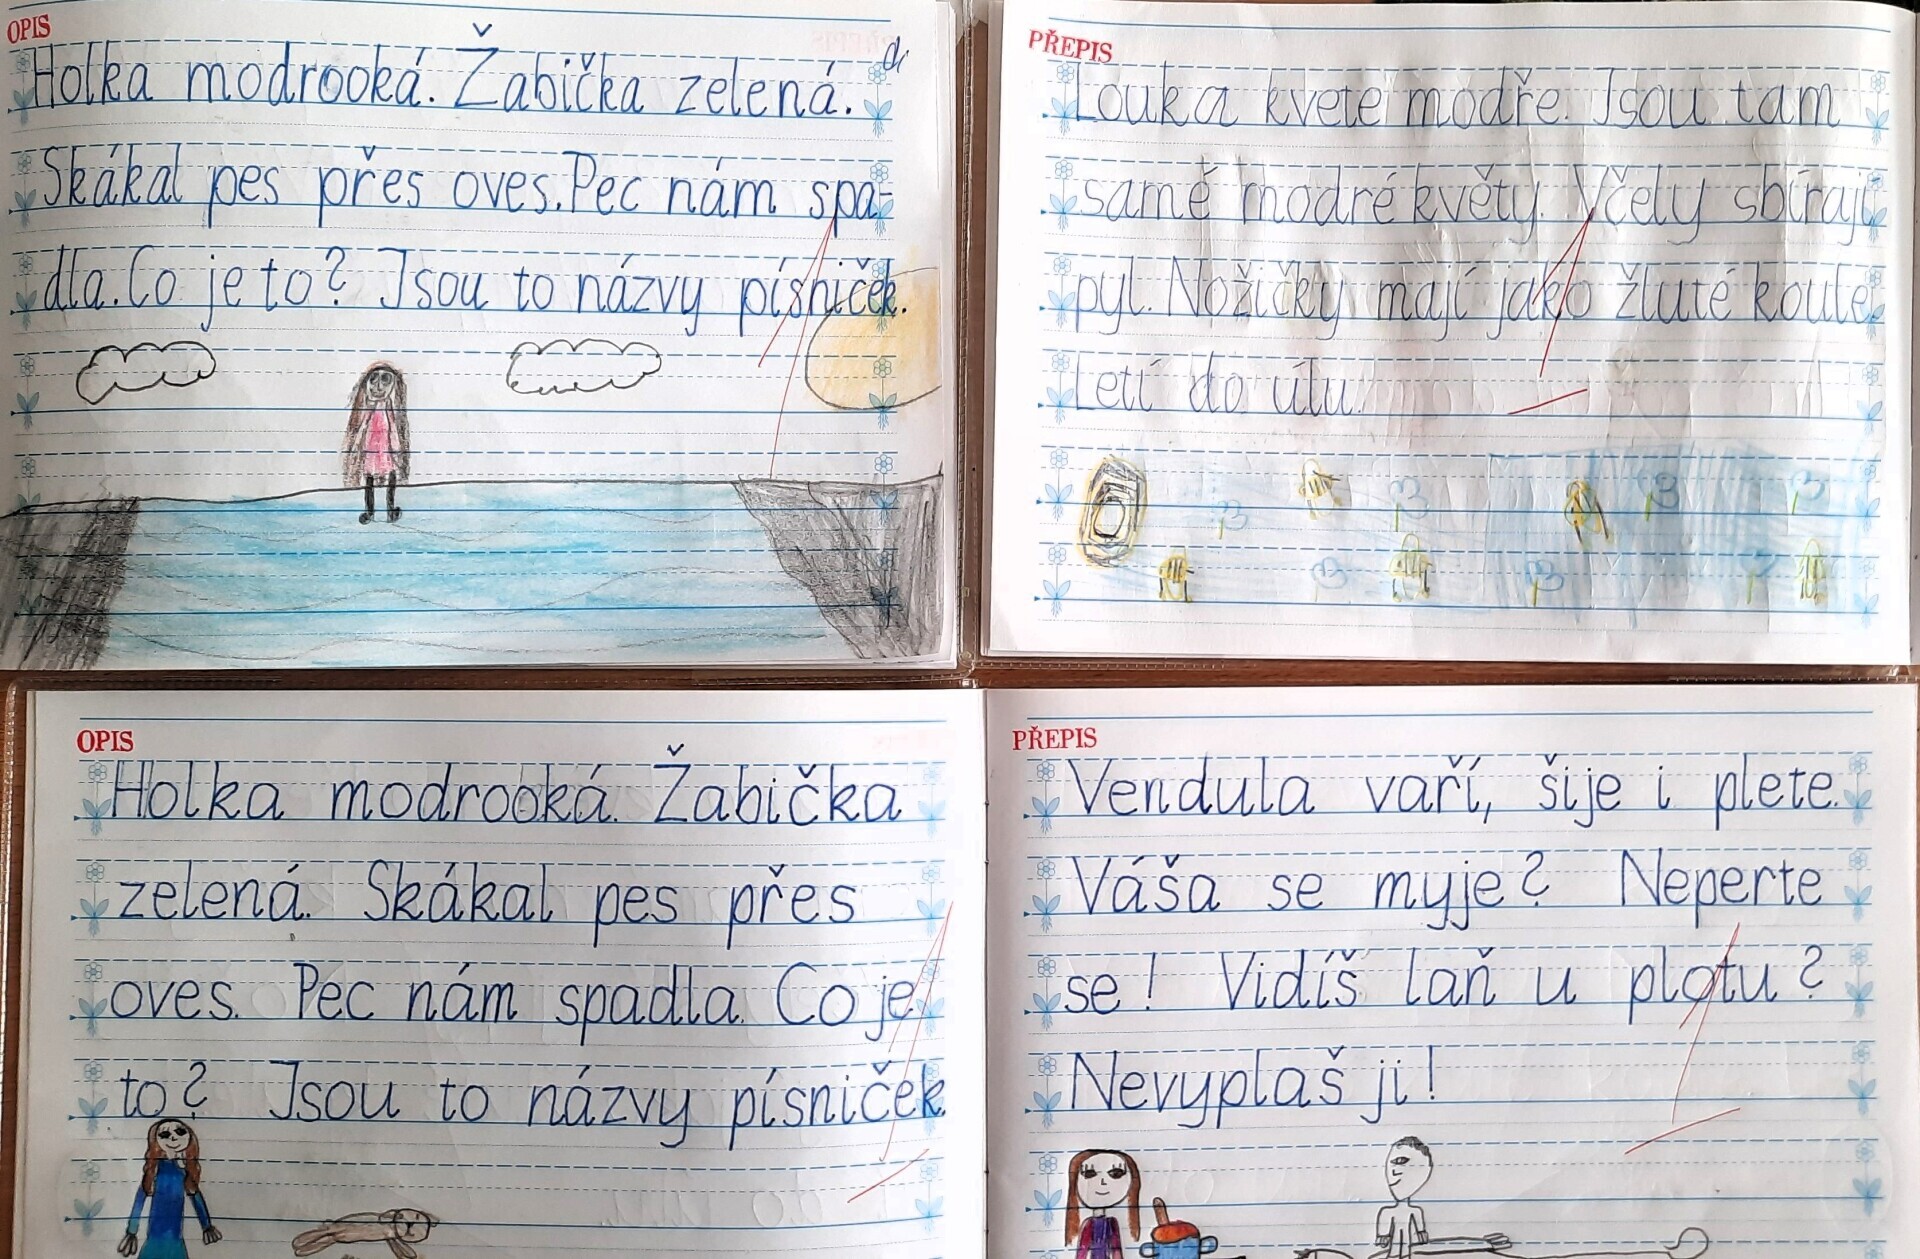 OPIS
Holka modrooká. Žabička zelená.
Skákal pes přes oves. Pec nám spa-
dla. Co je to? Jsou to názvy písniček.
PŘEPIS
Louka kvete modře. Jsou tam
samé modré květy. Včely sbírají
pyl. Nožičky mají jako žluté koule.
Letí do úlu.
OPIS
Holka modrooká. Žabička
zelená. Skákal pes přes
oves. Pec nám spadla. Co je
to? Jsou to názvy písniček.
PŘEPIS
Vendula vaří, šije i plete.
Váša se myje? Neperte
se! Vidíš laň u plotu?
Nevyplaš ji!